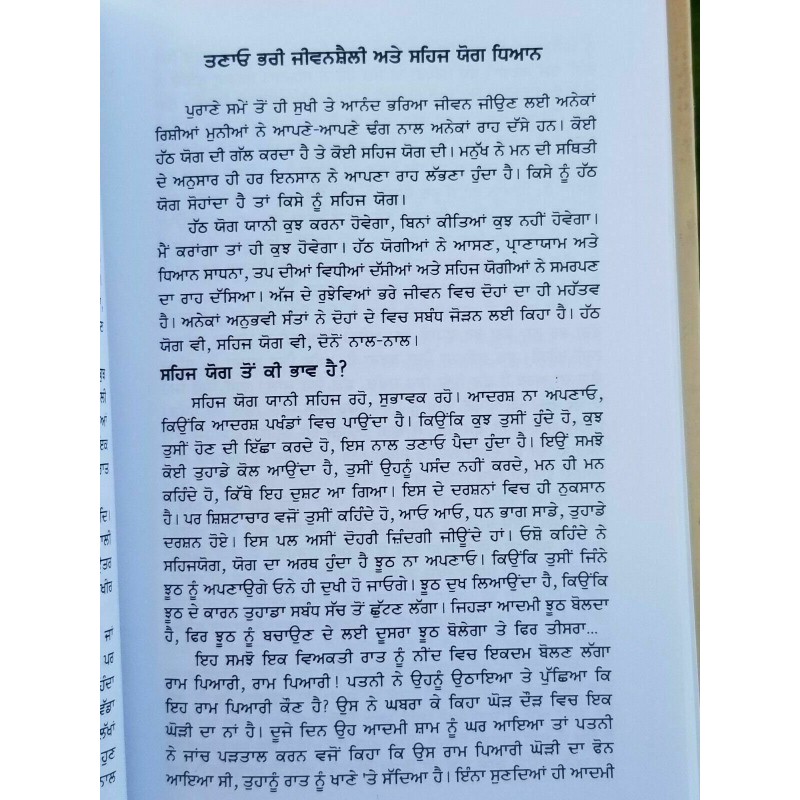 ਤਣਾਓ ਭਰੀ ਜੀਵਨਸ਼ੈਲੀ ਅਤੇ ਸਹਿਜ ਯੋਗ ਧਿਆਨ
ਪੁਰਾਣੇ ਸਮੇਂ ਤੋਂ ਹੀ ਸੁਖੀ ਤੇ ਆਨੰਦ ਭਰਿਆ ਜੀਵਨ ਜੀਉਣ ਲਈ ਅਨੇਕਾਂ
ਰਿਸ਼ੀਆਂ ਮੁਨੀਆਂ ਨੇ ਆਪਣੇ-ਆਪਣੇ ਢੰਗ ਨਾਲ ਅਨੇਕਾਂ ਰਾਹ ਦੱਸੇ ਹਨ। ਕੋਈ
ਹੱਠ ਯੋਗ ਦੀ ਗੱਲ ਕਰਦਾ ਹੈ ਤੇ ਕੋਈ ਸਹਿਜ ਯੋਗ ਦੀ। ਮਨੁੱਖ ਨੇ ਮਨ ਦੀ ਸਥਿਤੀ
ਦੇ ਅਨੁਸਾਰ ਹੀ ਹਰ ਇਨਸਾਨ ਨੇ ਆਪਣਾ ਰਾਹ ਲੱਭਣਾ ਹੁੰਦਾ ਹੈ। ਕਿਸੇ ਨੂੰ ਹੱਠ
ਯੋਗ ਸੋਹਾਂਦਾ ਹੈ ਤਾਂ ਕਿਸੇ ਨੂੰ ਸਹਿਜ ਯੋਗ।
ਹੱਠ ਯੋਗ ਯਾਨੀ ਕੁਝ ਕਰਨਾ ਹੋਵੇਗਾ, ਬਿਨਾਂ ਕੀਤਿਆਂ ਕੁਝ ਨਹੀਂ ਹੋਵੇਗਾ।
ਮੈਂ ਕਰਾਂਗਾ ਤਾਂ ਹੀ ਕੁਝ ਹੋਵੇਗਾ। ਹੱਠ ਯੋਗੀਆਂ ਨੇ ਆਸਣ, ਪ੍ਰਾਣਾਯਾਮ ਅਤੇ
ਧਿਆਨ ਸਾਧਨਾ, ਤਪ ਦੀਆਂ ਵਿਧੀਆਂ ਦੱਸੀਆਂ ਅਤੇ ਸਹਿਜ ਯੋਗੀਆਂ ਨੇ ਸਮਰਪਣ
ਦਾ ਰਾਹ ਦੱਸਿਆ। ਅੱਜ ਦੇ ਰੁਝੇਵਿਆਂ ਭਰੇ ਜੀਵਨ ਵਿਚ ਦੋਹਾਂ ਦਾ ਹੀ ਮਹੱਤਵ
ਹੈ। ਅਨੇਕਾਂ ਅਨੁਭਵੀ ਸੰਤਾਂ ਨੇ ਦੋਹਾਂ ਦੇ ਵਿਚ ਸਬੰਧ ਜੋੜਨ ਲਈ ਕਿਹਾ ਹੈ। ਹੱਠ
ਯੋਗ ਵੀ, ਸਹਿਜ ਯੋਗ ਵੀ, ਦੋਨੋਂ ਨਾਲ-ਨਾਲ।
ਸਹਿਜ ਯੋਗ ਤੋਂ ਕੀ ਭਾਵ ਹੈ?
ਸਹਿਜ ਯੋਗ ਯਾਨੀ ਸਹਿਜ ਰਹੋ, ਸੁਭਾਵਕ ਰਹੋ। ਆਦਰਸ਼ ਨਾ ਅਪਣਾਓ,
ਕਿਉਂਕਿ ਆਦਰਸ਼ ਪਖੰਡਾਂ ਵਿਚ ਪਾਉਂਦਾ ਹੈ। ਕਿਉਂਕਿ ਕੁਝ ਤੁਸੀਂ ਹੁੰਦੇ ਹੋ, ਕੁਝ
ਤੁਸੀਂ ਹੋਣ ਦੀ ਇੱਛਾ ਕਰਦੇ ਹੋ, ਇਸ ਨਾਲ ਤਣਾਓ ਪੈਦਾ ਹੁੰਦਾ ਹੈ। ਇਉਂ ਸਮਝੋ
ਕੋਈ ਤੁਹਾਡੇ ਕੋਲ ਆਉਂਦਾ ਹੈ, ਤੁਸੀਂ ਉਹਨੂੰ ਪਸੰਦ ਨਹੀਂ ਕਰਦੇ, ਮਨ ਹੀ ਮਨ
ਕਹਿੰਦੇ ਹੋ, ਕਿੱਥੇ ਇਹ ਦੁਸ਼ਟ ਆ ਗਿਆ। ਇਸ ਦੇ ਦਰਸ਼ਨਾਂ ਵਿਚ ਹੀ ਨੁਕਸਾਨ
ਹੈ। ਪਰ ਸ਼ਿਸ਼ਟਾਚਾਰ ਵਜੋਂ ਤੁਸੀਂ ਕਹਿੰਦੇ ਹੋ, ਆਓ ਆਓ, ਧਨ ਭਾਗ ਸਾਡੇ, ਤੁਹਾਡੇ
ਦਰਸ਼ਨ ਹੋਏ। ਇਸ ਪਲ ਅਸੀਂ ਦੋਹਰੀ ਜ਼ਿੰਦਗੀ ਜੀਊਂਦੇ ਹਾਂ। ਓਸ਼ੋ ਕਹਿੰਦੇ ਨੇ
ਸਹਿਜਯੋਗ, ਯੋਗ ਦਾ ਅਰਥ ਹੁੰਦਾ ਹੈ ਝੂਠ ਨਾ ਅਪਣਾਓ। ਕਿਉਂਕਿ ਤੁਸੀਂ ਜਿੰਨੇ
ਝੂਠ ਨੂੰ ਅਪਣਾਉਗੇ ਓਨੇ ਹੀ ਦੁਖੀ ਹੋ ਜਾਓਗੇ। ਝੂਠ ਦੁਖ ਲਿਆਉਂਦਾ ਹੈ, ਕਿਉਂਕਿ
ਝੂਠ ਦੇ ਕਾਰਨ ਤੁਹਾਡਾ ਸਬੰਧ ਸੱਚ ਤੋਂ ਛੁੱਟਣ ਲੱਗਾ। ਜਿਹੜਾ ਆਦਮੀ ਝੂਠ ਬੋਲਦਾ
ਹੈ, ਫਿਰ ਝੂਠ ਨੂੰ ਬਚਾਉਣ ਦੇ ਲਈ ਦੂਸਰਾ ਝੂਠ ਬੋਲੇਗਾ ਤੇ ਫਿਰ ਤੀਸਰਾ...
ਇਹ ਸਮਝੋ ਇਕ ਵਿਅਕਤੀ ਰਾਤ ਨੂੰ ਨੀਂਦ ਵਿਚ ਇਕਦਮ ਬੋਲਣ ਲੱਗਾ
ਰਾਮ ਪਿਆਰੀ, ਰਾਮ ਪਿਆਰੀ! ਪਤਨੀ ਨੇ ਉਹਨੂੰ ਉਠਾਇਆ ਤੇ ਪੁੱਛਿਆ ਕਿ
ਇਹ ਰਾਮ ਪਿਆਰੀ ਕੌਣ ਹੈ? ਉਸ ਨੇ ਘਬਰਾ ਕੇ ਕਿਹਾ ਘੋੜ ਦੌੜ ਵਿਚ ਇਕ
ਘੋੜੀ ਦਾ ਨਾਂ ਹੈ। ਦੂਜੇ ਦਿਨ ਉਹ ਆਦਮੀ ਸ਼ਾਮ ਨੂੰ ਘਰ ਆਇਆ ਤਾਂ ਪਤਨੀ
ਨੇ ਜਾਂਚ ਪੜਤਾਲ ਕਰਨ ਵਜੋਂ ਕਿਹਾ ਕਿ ਉਸ ਰਾਮ ਪਿਆਰੀ ਘੋੜੀ ਦਾ ਫੋਨ
ਆਇਆ ਸੀ, ਤੁਹਾਨੂੰ ਰਾਤ ਨੂੰ ਖਾਣੇ 'ਤੇ ਸੱਦਿਆ ਹੈ। ਇੰਨਾ ਸੁਣਦਿਆਂ ਹੀ ਆਦਮੀ